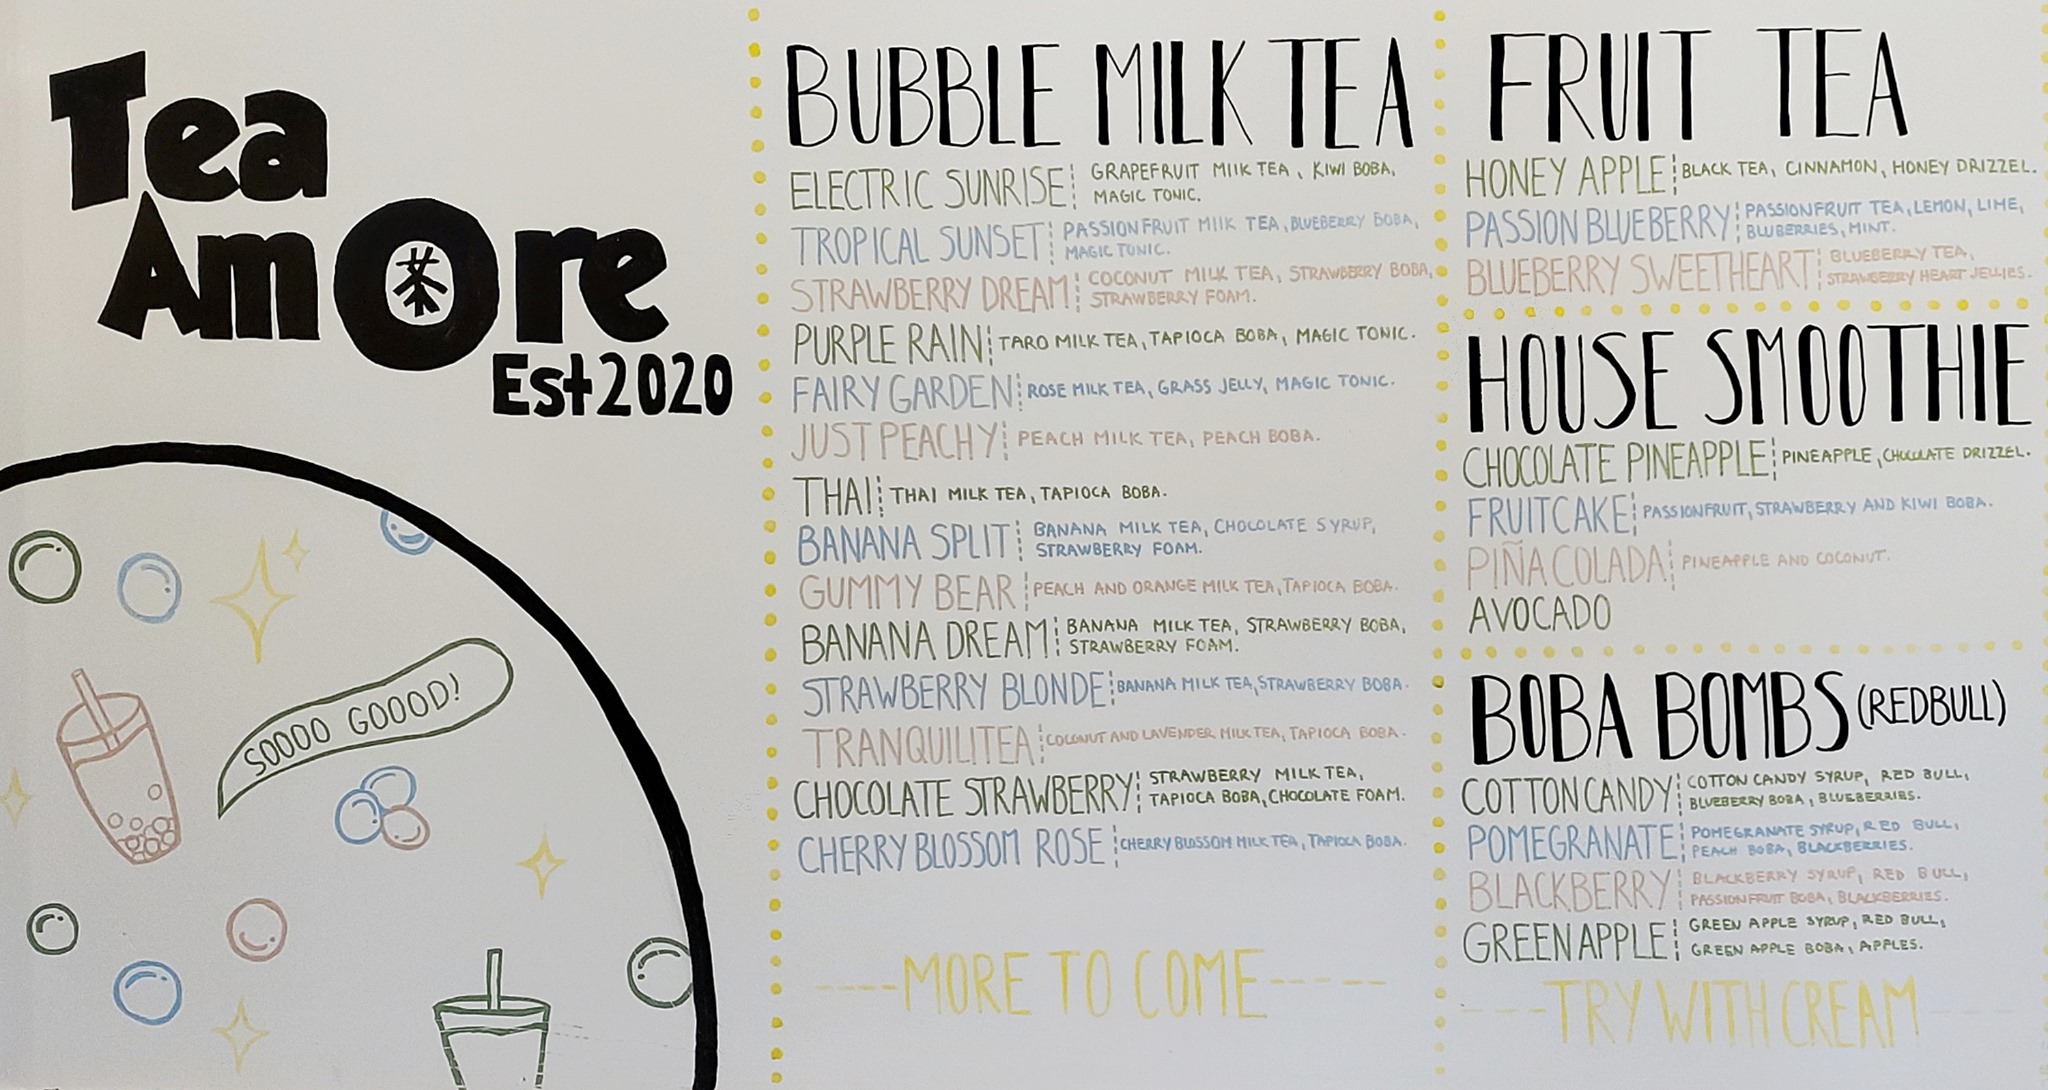 Tea
Amore
茶
Est 2020
SOOOO GOOOD!
BUBBLE MILK TEA
ELECTRIC SUNRISE GRAPEFRUIT MILK TEA, KIWI BOBA,
MAGIC TONIC.
TROPICAL SUNSET PASSIONFRUIT MILK TEA, BLUEBERRY BOBA,
MAGIC TONIC.
STRAWBERRY DREAM COCONUT MILK TEA, STRAWBERRY BOBA,
STRAWBERRY FOAM.
PURPLE RAIN TARO MILK TEA, TAPIOCA BOBA, MAGIC TONIC.
FAIRY GARDEN ROSE MILK TEA, GRASS JELLY, MAGIC TONIC.
JUST PEACHY PEACH MILK TEA, PEACH BOBA.
THAI THAI MILK TEA, TAPIOCA BOBA.
BANANA SPLIT BANANA MILK TEA, CHOCOLATE SYRUP,
STRAWBERRY FOAM.
GUMMY BEAR PEACH AND ORANGE MILK TEA, TAPIOCA BOBA.
BANANA DREAM BANANA MILK TEA, STRAWBERRY BOBA,
STRAWBERRY FOAM.
STRAWBERRY BLONDE BANANA MILK TEA, STRAWBERRY BOBA.
TRANQUILITEA COCONUT AND LAVENDER MILK TEA, TAPIOCA BOBA.
CHOCOLATE STRAWBERRY STRAWBERRY MILK TEA,
TAPIOCA BOBA, CHOCOLATE FOAM.
CHERRY BLOSSOM ROSE CHERRY BLOSSOM MILK TEA, TAPIOCA BOBA.
----MORE TO COME----
FRUIT TEA
HONEY APPLE BLACK TEA, CINNAMON, HONEY DRIZZEL.
PASSION BLUEBERRY PASSIONFRUIT TEA, LEMON, LIME,
BLUBERRIES, MINT.
BLUEBERRY SWEETHEART BLUEBERRY TEA,
STRAWBERRY HEART JELLIES.
HOUSE SMOOTHIE
CHOCOLATE PINEAPPLE PINEAPPLE, CHOCOLATE DRIZZEL.
FRUITCAKE PASSIONFRUIT, STRAWBERRY AND KIWI BOBA.
PIÑA COLADA PINEAPPLE AND COCONUT.
AVOCADO
BOBA BOMBS (REDBULL)
COTTON CANDY COTTON CANDY SYRUP, RED BULL,
BLUEBERRY BOBA, BLUEBERRIES.
POMEGRANATE POMEGRANATE SYRUP, RED BULL,
PEACH BOBA, BLACKBERRIES.
BLACKBERRY BLACKBERRY SYRUP, RED BULL,
PASSIONFRUIT BOBA, BLACKBERRIES.
GREEN APPLE GREEN APPLE SYRUP, RED BULL,
GREEN APPLE BOBA, APPLES.
----TRY WITH CREAM----